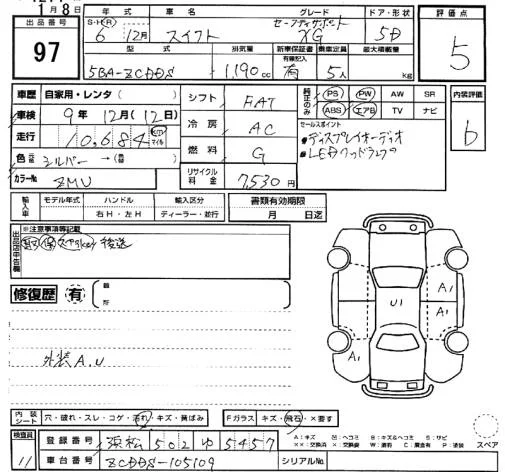 1月8日
出品番号 年 月 車名 グレード ドア・形状 評価点
97
S・H・R 6 12月 スイフト セーフティサポート XG 5D 5
型式 排気量 新車保証書 乗車定員 最大積載量
有 記入 有 kg
5BA-ZCDDS 1,190cc 有 5人
車歴 自家用・レンタ シフト FAT 純正のみ PS PW AW SR 内装評価
車検 9年12月(12日) ABS エアB TV ナビ b
走行 10,684 km マイル 冷房 AC セールスポイント
・ディスプレイオーディオ
色 元色 シルバー → (色替) 燃料 G ・LEDヘッドランプ
カラーNo ZMU リサイクル料金 7,530円
輸入車 モデル年式 ハンドル 輸入区分 書類有効期限
右H・左H ディーラー・並行 月 日迄
出品店申告欄 ※注意事項等記載
取 保 スペアkey 後送
修復歴 有 箇所
A1
U1 A1
A1
外装A.U
内装シート 穴・破れ・スレ・コゲ・汚れ・キズ・黄ばみ Fガラス キズ・飛石・×要す
A:キズ U:ヘコミ B:キズ&ヘコミ S:サビ
××:交換済 ×:交換要 W:波打 C:腐食有 P:塗装 スペア
検査員 11 登録番号 浜松 502 ゆ 5457
車台番号 ZCDDS-105109 シリアルNo.